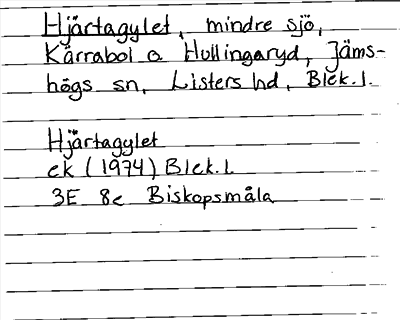 Hjärtagylet, mindre sjö,
Kärrabol o Hullingaryd, Jäms-
högs sn, Listers hd, Blek.l.
Hjärtagylet
ek (1974) Blek.l.
3E 8e Biskopsmåla